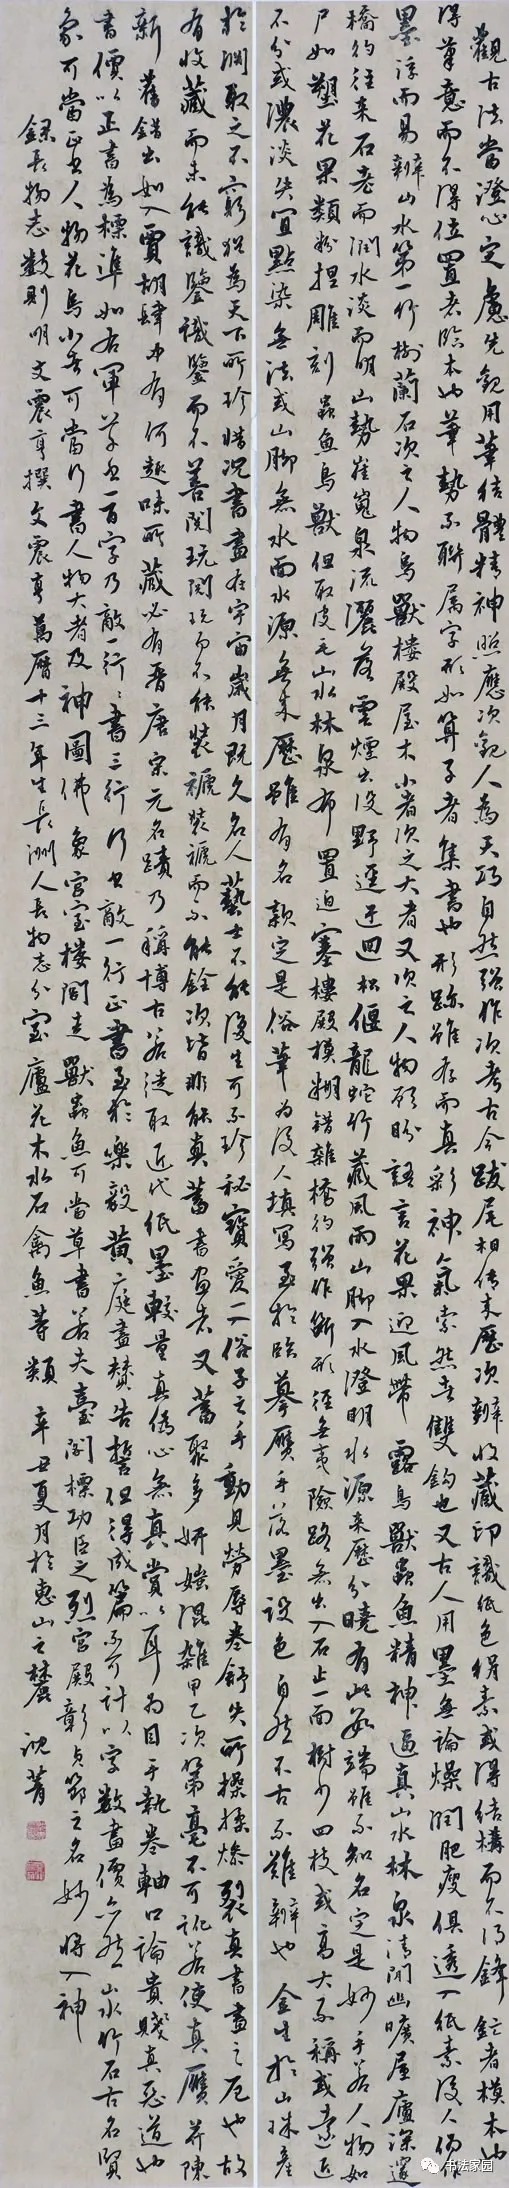 觀古法書當澄心定慮先觀用筆結體精神照應次觀人為天巧自然強作次考古今跋尾相傳來歷次辨收藏印識紙色絹素或得結構而不得鋒鋩者模本也
得筆意而不得位置者臨本也筆勢不聯屬字形如算子者集書也形跡雖存而真彩神氣索然者雙鈎也又古人用墨無論燥潤肥瘦俱透入紙素後人偽作
墨浮而易辨山水第一竹樹蘭石次之人物鳥獸樓殿屋木小者次之大者又次之人物顧盼語言花果迎風帶露鳥獸蟲魚精神逼真山水林泉清閒幽曠屋廬深邃
橋彴往來石老而潤水淡而明山勢崔嵬泉流灑落雲煙出沒野逕迂迴松偃龍蛇竹藏風雨山腳入水澄明水源來歷分曉有此數端雖不知名定是妙手若人物如
尸如塑花果類粉捏雕刻蟲魚鳥獸但取皮毛山水林泉布置迫塞樓殿模糊錯雜橋彴強作斷形徑無夷險路無出入石止一面樹少四枝或高大不稱或遠近
不分或濃淡失宜點染無法或山腳無水面水源無來歷雖有名款定是俗筆為後人填寫至於臨摹贋手落墨設色自然不古不難辨也 金生於山珠產
於淵取之不窮猶為天下所珍惜況書畫在宇宙歲月既久名人藝士不能復生可不珍秘寶愛一入俗子之手動見勞辱卷舒失所操揉燥裂真書畫之厄也故
有收藏而未能識鑒識鑒而不善閱玩閱玩而不能裝褫裝褫而不能銓次皆非能真蓄書畫者又蓄聚多妍媸混雜甲乙次第毫不可訛若使真贋并陳
新舊錯出如入賈胡肆中有何趣味所藏必有晉唐宋元名蹟乃稱博古若徒取近代紙墨較量真偽心無真賞以耳為目手執卷軸口論貴賤真惡道也
書價以正書為標準如右軍草書一百字乃敵一行行書三行行書敵一行正書至於樂毅黃庭畫贊告誓但得成篇不可計以字數畫價亦然山水竹石古名賢
象可當正書人物花鳥小者可當行書人物大者及神圖佛象宮室樓閣走獸蟲魚可當草書若夫臺閣標功臣之烈宮殿彰貞節之名妙將入神
錄長物志數則明文震亨撰文震亨萬曆十三年生長洲人長物志分室廬花木水石禽魚等類 辛丑夏月於惠山之麓 沈菁
書法家园